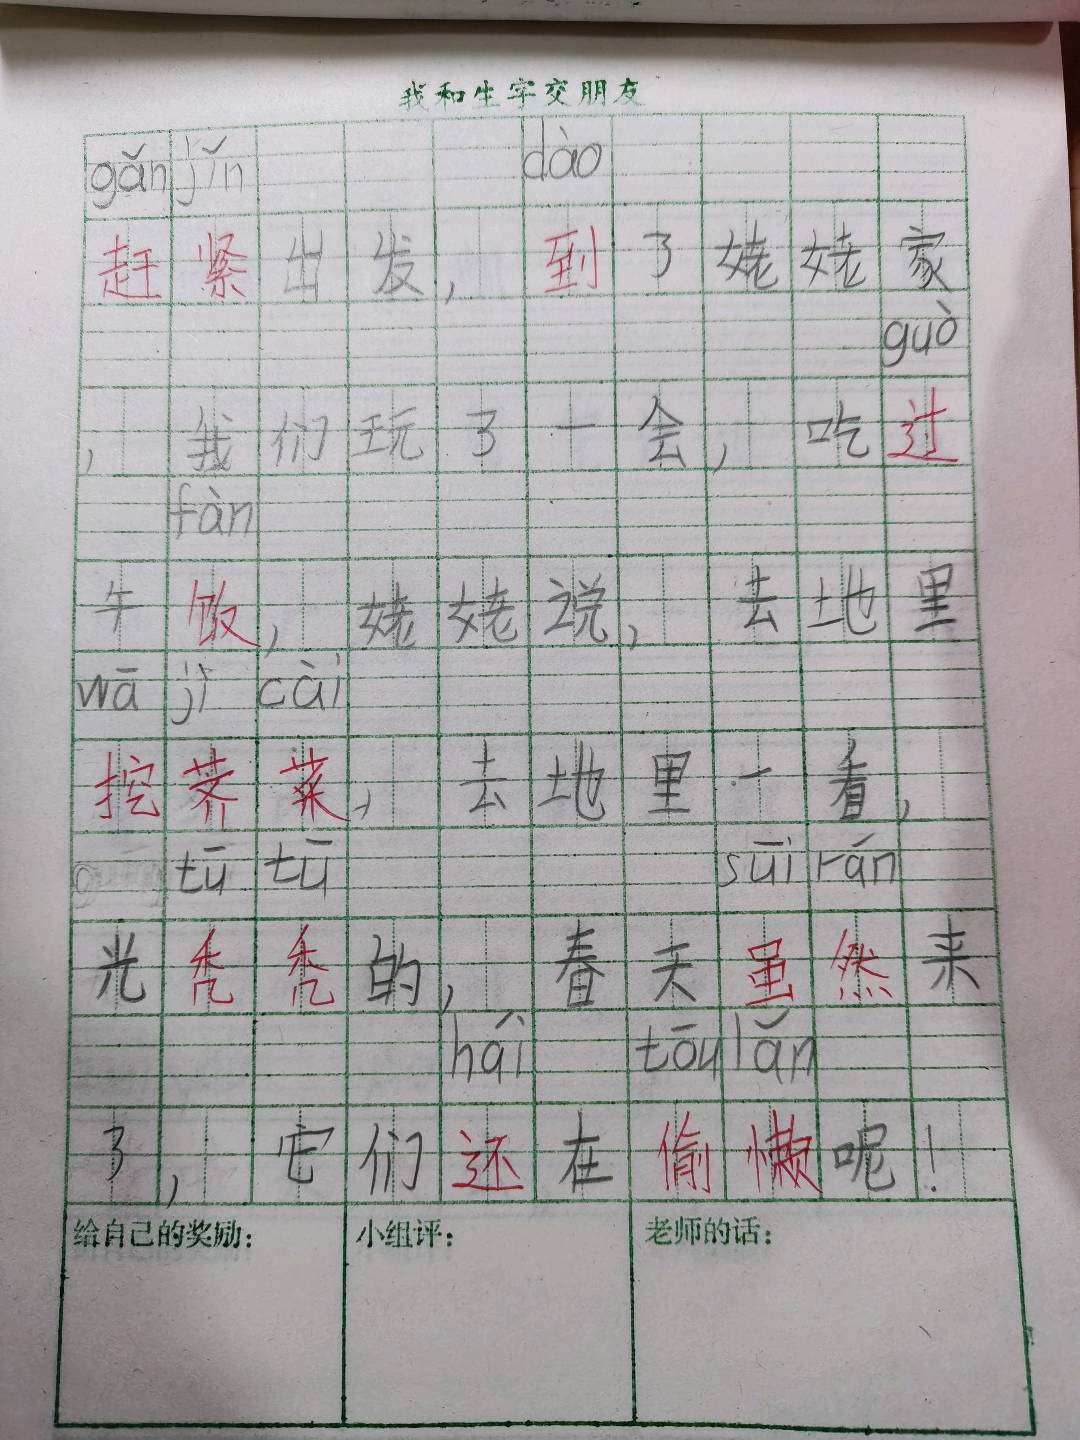 我和生字交朋友
gǎn jǐn dào
赶紧出发，到了姥姥家
guò
，我们玩了一会，吃过
fàn
午饭，姥姥说，去地里
wā jì cài
挖荠菜，去地里一看，
tū tū suī rán
光秃秃的，春天虽然来
hái tōu lǎn
了，它们还在偷懒呢！
给自己的奖励： 小组评： 老师的话：